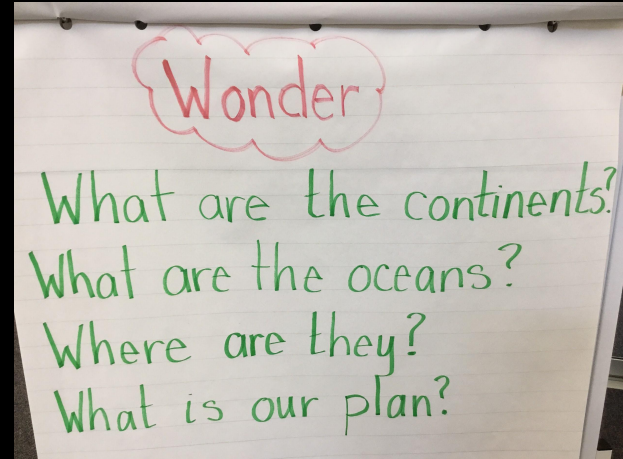 Wonder
What are the continents?
What are the oceans?
Where are they?
What is our plan?